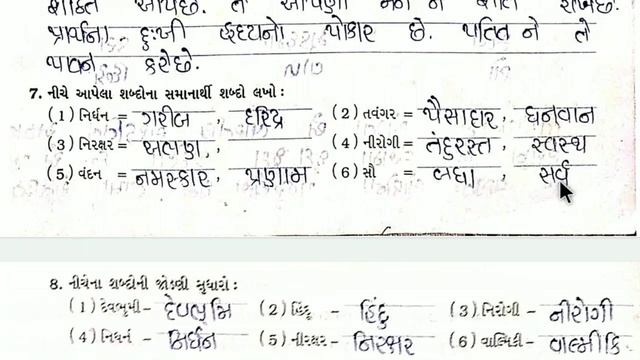 શક્તિ આપેછે. તે આપણા મન ને શાંતિ રાખેછે.
પ્રાર્થના દુઃખી હૃદયનો પોકાર છે. પતિત ને તે
પાવન કરેછે.
7. નીચે આપેલા શબ્દોના સમાનાર્થી શબ્દો લખો :
(1) નિર્ધન = ગરીબ , દરિદ્ર (2) તવંગર = પૈસાદાર, ધનવાન
(3) નિરક્ષર = અભણ, (4) નીરોગી = તંદુરસ્ત, સ્વસ્થ
(5) વંદન = નમસ્કાર, પ્રણામ (6) સૌ = બધા , સર્વ
8. નીચેના શબ્દોની જોડણી સુધારો :
(1) દેવભુમી - દેવભૂમિ (2) હિંદૂ - હિંદુ (3) નિરોગી - નીરોગી
(4) નિધર્ન - નિર્ધન (5) નીરક્ષર - નિરક્ષર (6) વાલ્મિકી - વાલ્મીકિ